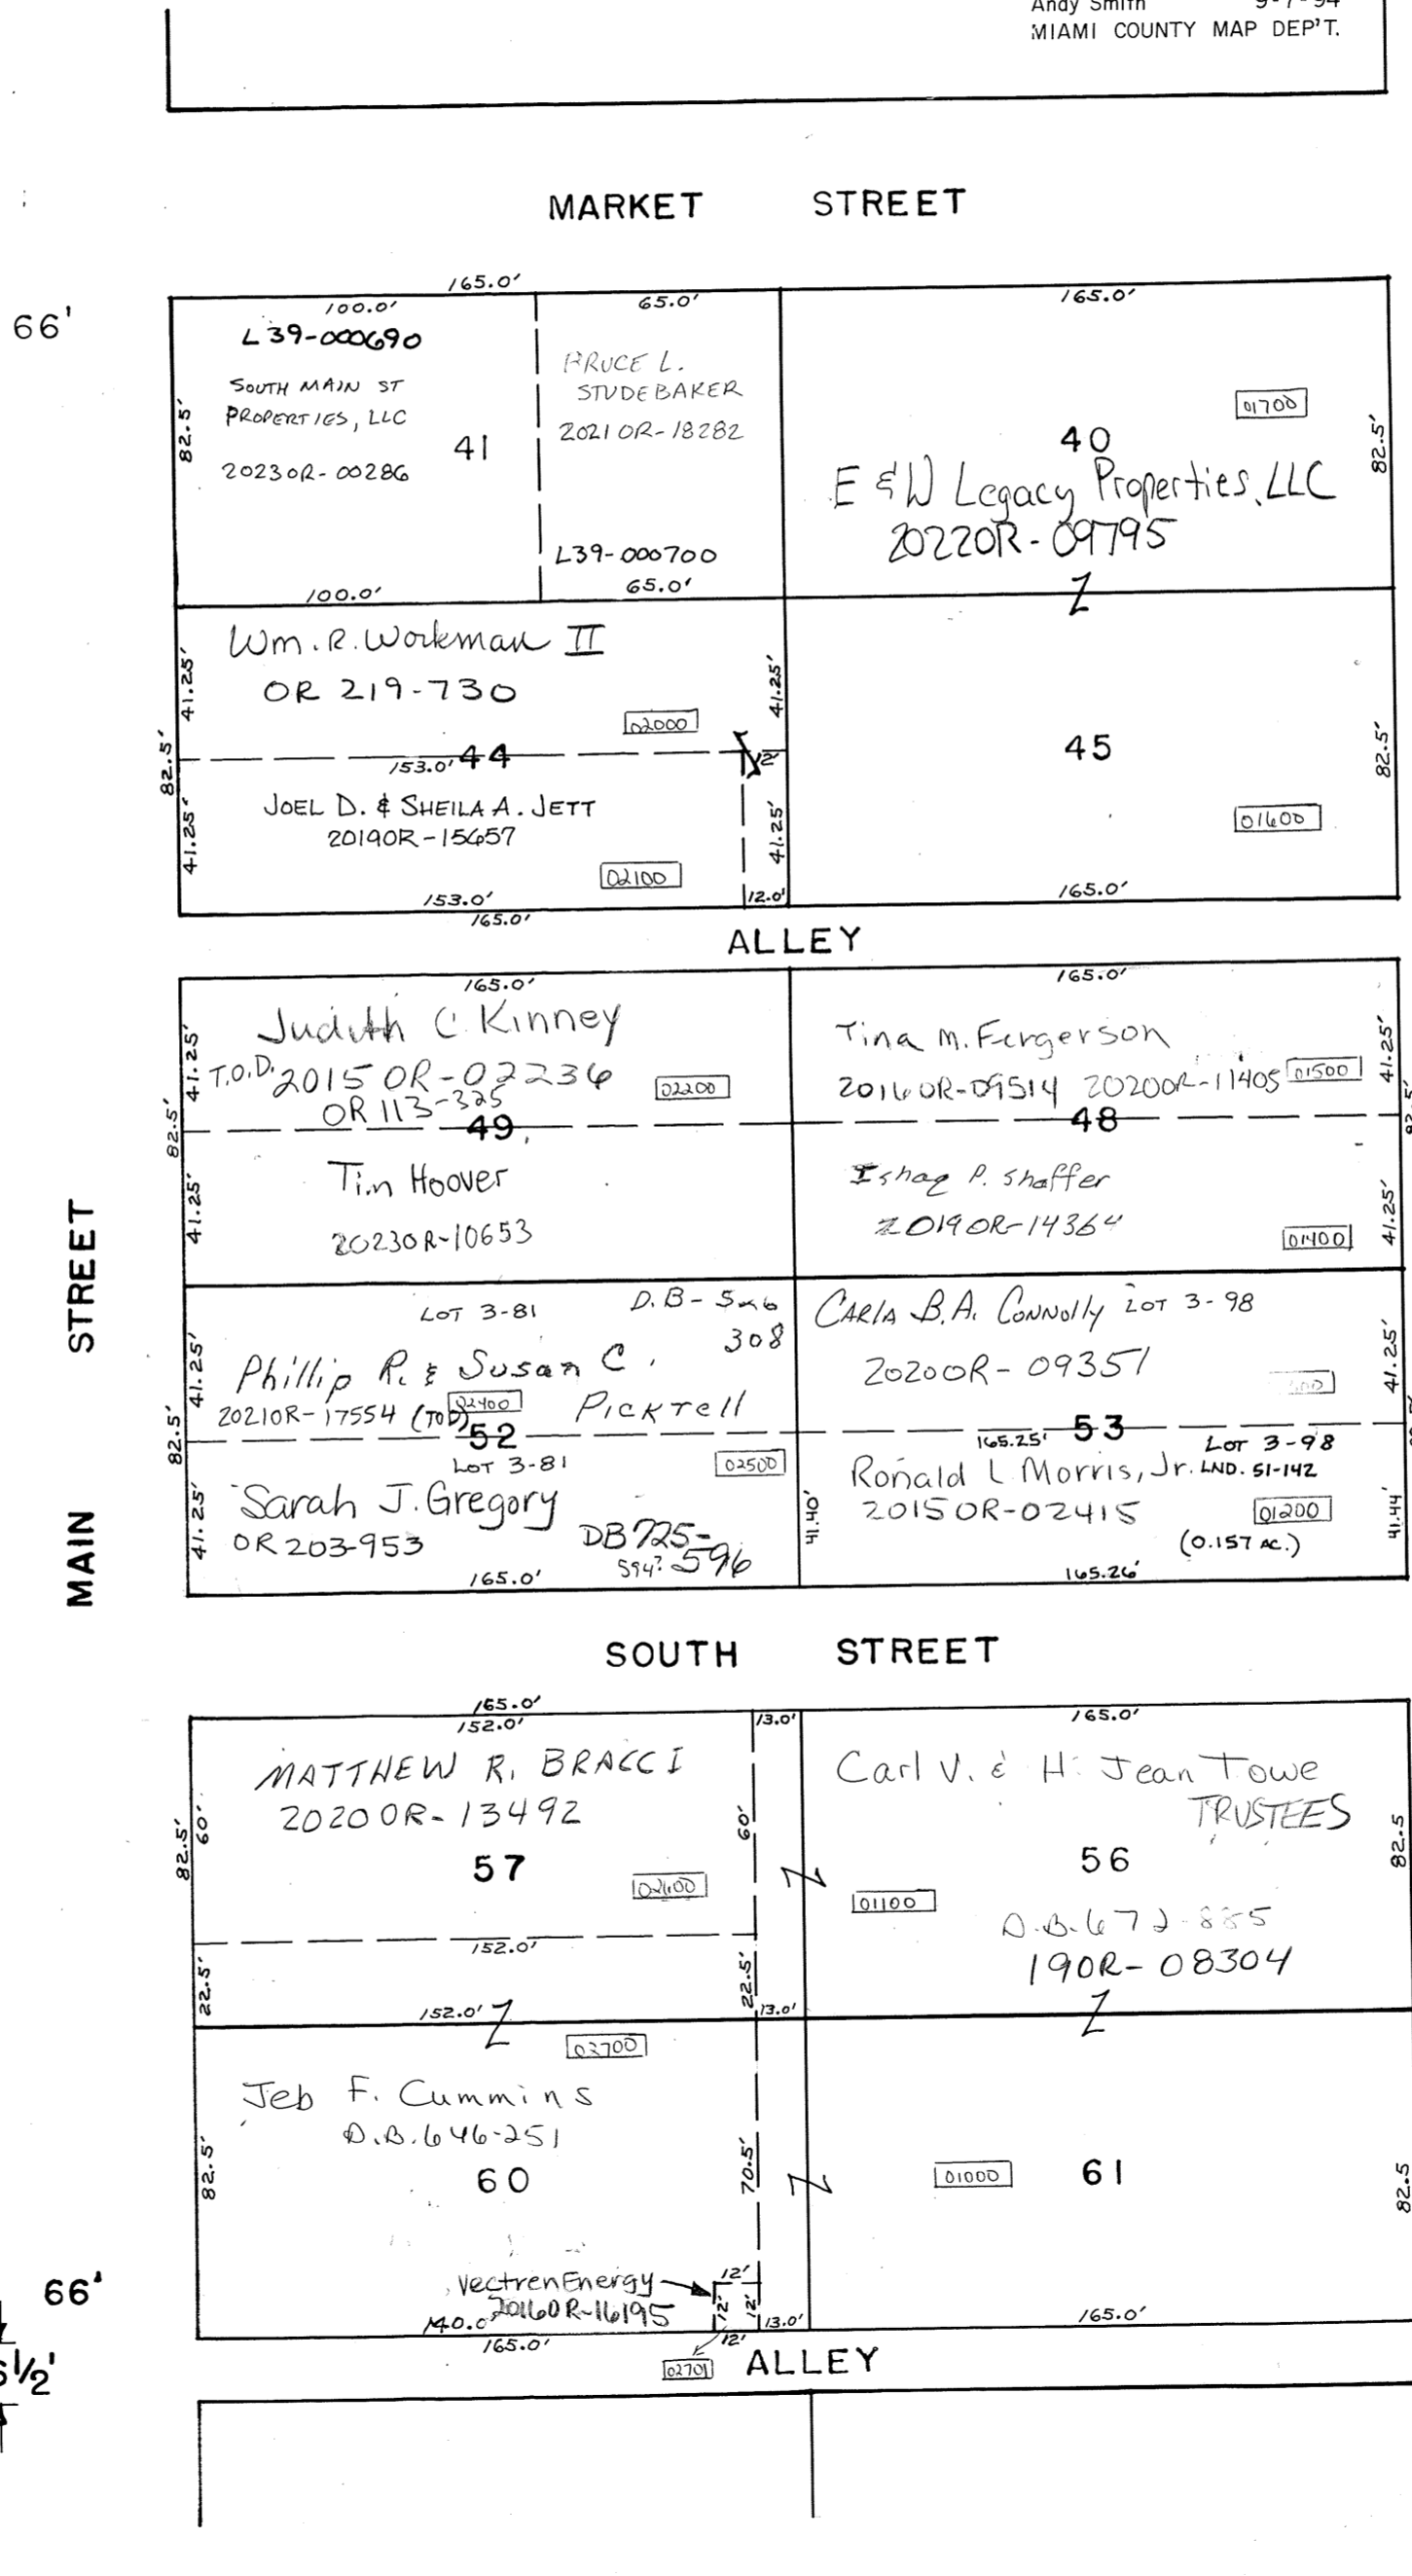 Andy Smith 9-7-94
MIAMI COUNTY MAP DEP'T.
MARKET STREET
66'
165.0'
100.0' 65.0' 165.0'
L39-000690
SOUTH MAIN ST
PROPERTIES, LLC
20230R-00286
82.5'
41
BRUCE L.
STUDEBAKER
20210R-18282
L39-000700
100.0' 65.0'
01700
40
82.5'
E & W Legacy Properties, LLC
20220R-09795
Z
Wm. R. Workman II
OR 219-730
41.25' 41.25'
02000
82.5'
153.0' 44 12'
JOEL D. & SHEILA A. JETT
20190R-15657
41.25' 41.25'
02100
153.0' 12.0'
165.0'
45
82.5'
01600
165.0'
ALLEY
165.0' 165.0'
Judith C. Kinney
T.O.D. 2015 OR-02236
OR 113-325
41.25'
02200
82.5'
49
Tim Hoover
20230R-10653
41.25'
Tina M. Fergerson
20160R-09514 20200R-11405 01500
41.25'
48
Ishaq P. Shaffer
20190R-14364
01400
41.25'
MAIN STREET
LOT 3-81 D.B-
308
Phillip R. & Susan C.
Pickrell
20210R-17554 (TOD) 02400
41.25'
82.5'
52
LOT 3-81
02500
Sarah J. Gregory
OR 203-953
DB 725-
594? 596
41.25'
165.0'
CARLA B.A. CONNOLLY LOT 3-98
20200R-09351
41.25'
165.25' 53
LOT 3-98
Ronald L Morris, Jr. LND. 51-142
20150R-02415
01200
(0.157 AC.)
41.40' 41.44'
165.26'
SOUTH STREET
165.0'
152.0' 13.0' 165.0'
MATTHEW R. BRACCI
20200R-13492
82.5' 60' 60'
57
02600
152.0'
22.5' 22.5'
152.0' Z 13.0'
Carl V. & H. Jean Towe
TRUSTEES
82.5
56
Z
01100
D.B. 672-885
190R-08304
Z
02700
Jeb F. Cummins
D.B. 646-251
82.5' 70.5'
60
Z
01000
61
82.5
Vectren Energy
20160R-16195
12'
12' 12'
140.0' 13.0'
165.0' 12' 165.0'
02701
ALLEY
66'
1/2'